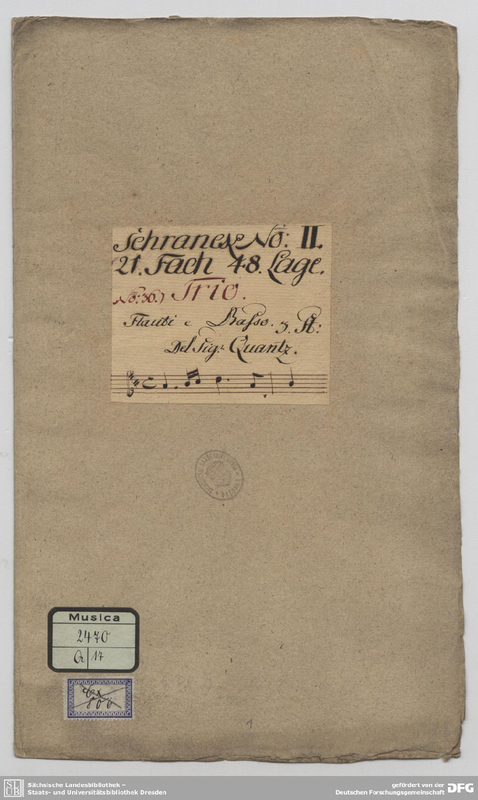 Schranck No: II.
21. Fach 48. Lage.
No: 30.) Trio.
Flauti e Basso. 3. St:
Del Sigr Quantz.
Musica
2470
Q 17
Sächsische Landesbibliothek –
Staats- und Universitätsbibliothek Dresden
gefördert von der
Deutschen Forschungsgemeinschaft
DFG